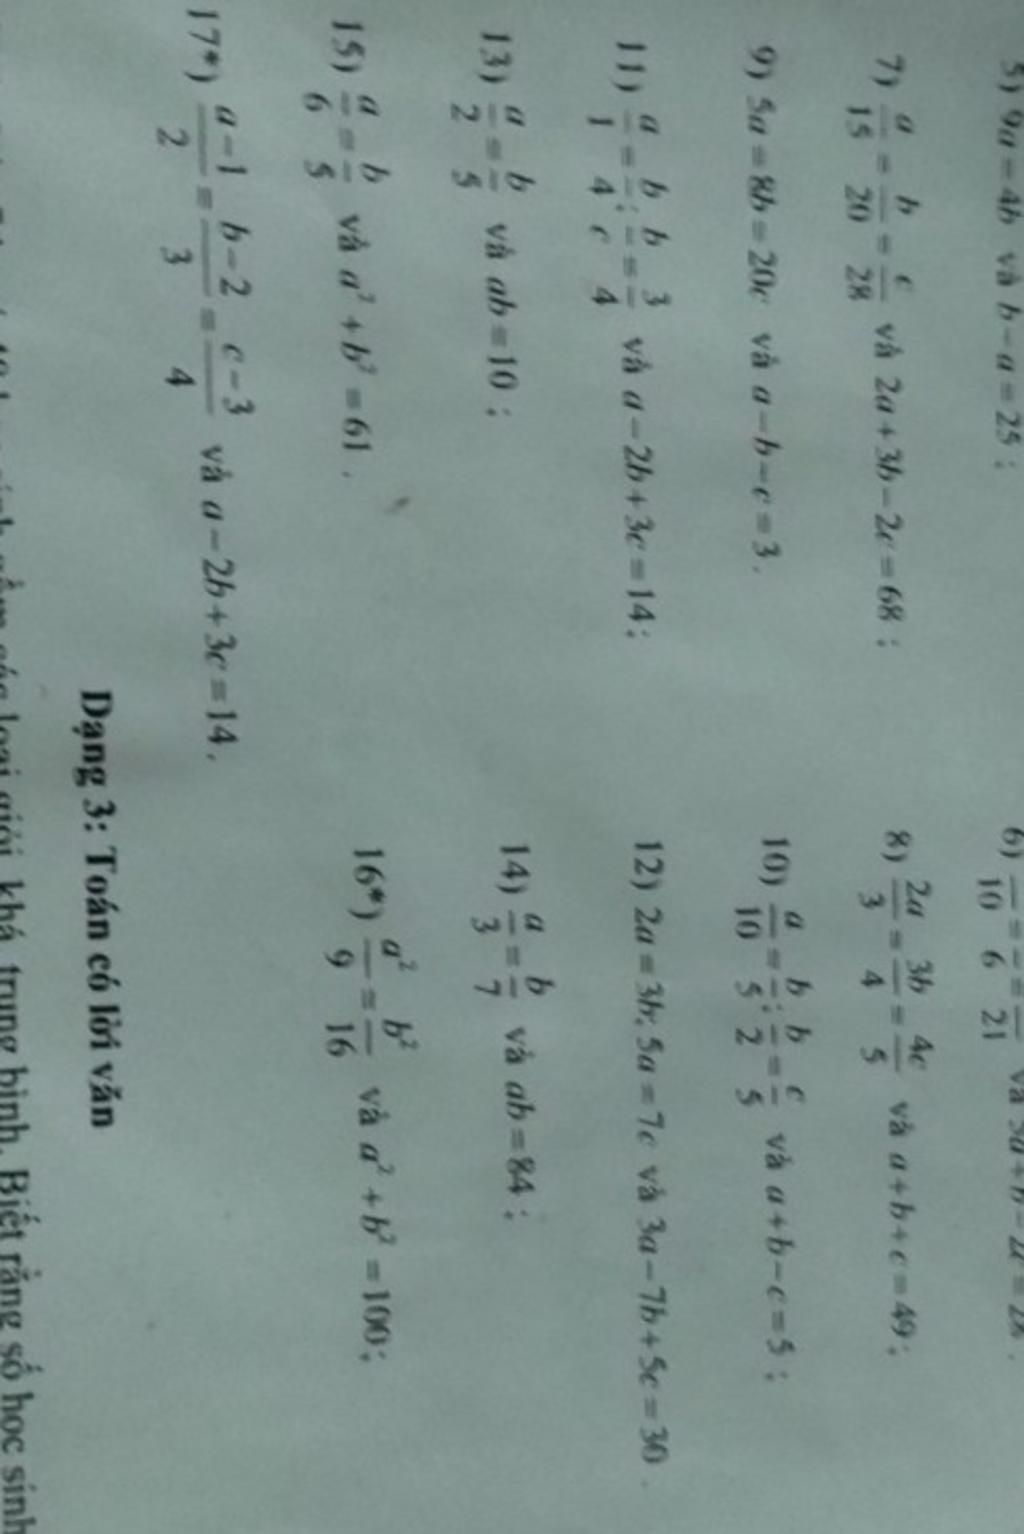 5) 9a = 4b và b − a = 25 ;
6) /10 = /6 = /21 và 5a + b − 2c = 28 .
7) a/15 = b/20 = c/28 và 2a + 3b − 2c = 68 ;
8) 2a/3 = 3b/4 = 4c/5 và a + b + c = 49 ;
9) 5a = 8b = 20c và a − b − c = 3 .
10) a/10 = b/5 ; b/2 = c/5 và a + b − c = 5 ;
11) a/1 = b/4 ; b/c = 3/4 và a − 2b + 3c = 14 ;
12) 2a = 3b; 5a = 7c và 3a − 7b + 5c = 30 .
13) a/2 = b/5 và ab = 10 ;
14) a/3 = b/7 và ab = 84 ;
15) a/6 = b/5 và a² + b² = 61 .
16*) a²/9 = b²/16 và a² + b² = 100 ;
17*) a−1/2 = b−2/3 = c−3/4 và a − 2b + 3c = 14 .
Dạng 3: Toán có lời văn
gồm các loại giỏi, khá, trung bình. Biết rằng số học sinh